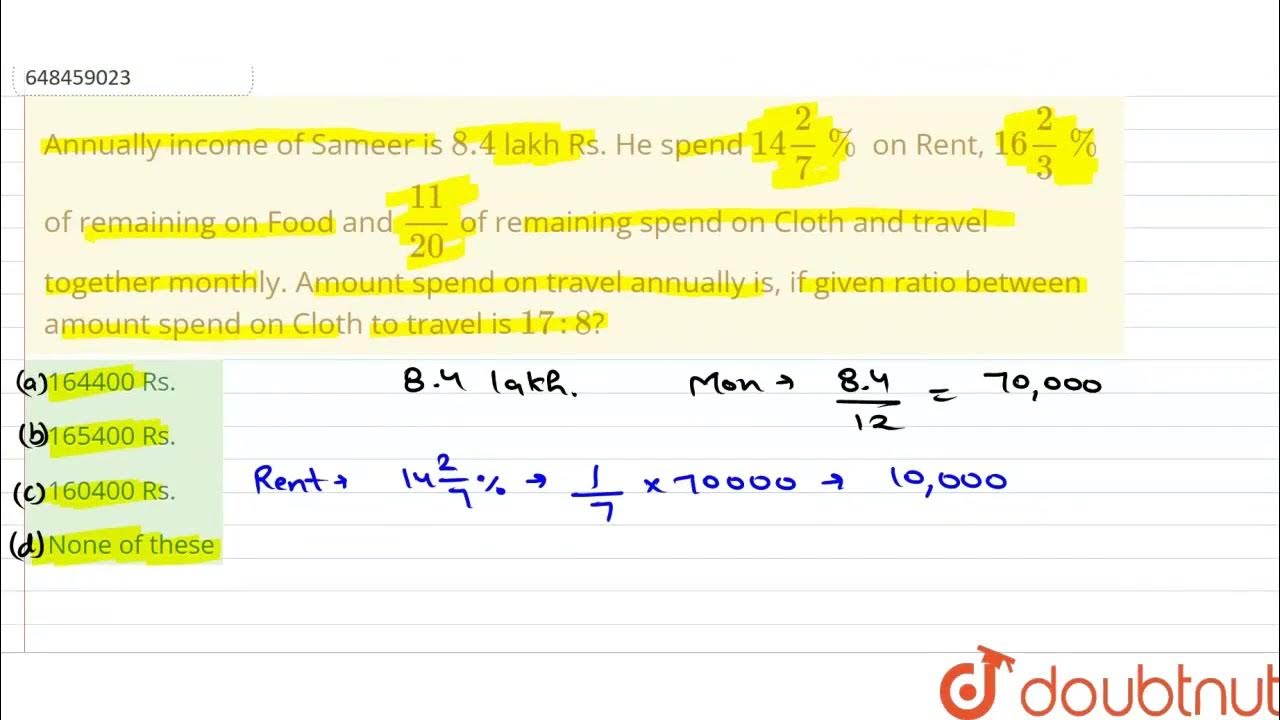 648459023
Annually income of Sameer is 8.4 lakh Rs. He spend 14 2/7 % on Rent, 16 2/3 %
of remaining on Food and 11/20 of remaining spend on Cloth and travel
together monthly. Amount spend on travel annually is, if given ratio between
amount spend on Cloth to travel is 17 : 8?
(a) 164400 Rs. 8.4 lakh. Mon → 8.4/12 = 70,000
(b) 165400 Rs.
(c) 160400 Rs. Rent → 14 2/7 % → 1/7 × 70000 → 10,000
(d) None of these
doubtnut